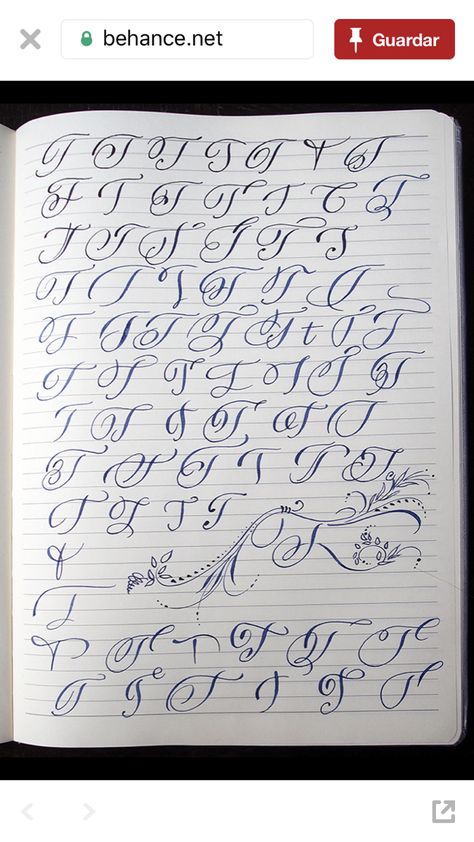 behance.net
Guardar
T T T T T T T
T T T T T T T
T T T T T T
T T T T T T
T T T T T t T T
T T T T T T T
T T T T T T
T T T T T T
T T T T
T
T
T
T T T T T T
T T T T T T